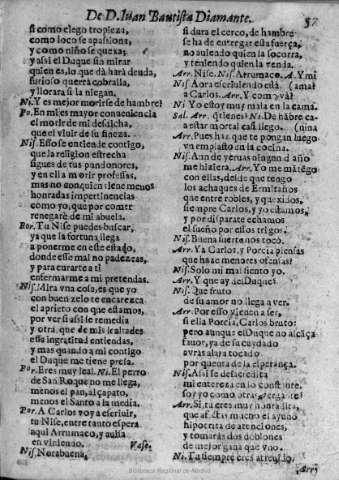 De D. Iuan Bautista Diamante.
si como ciego tropieza,
como loco se apassiona,
y como niño se quexas
y assi el Duque sin mirar
quien es, lo que dà harà deuda,
furioso querrà cobralla,
y llorarà si la niegan.
Ni. Y es mejor morirse de hambre?
Po. En mi es mayor conueniencia
el morir de mi desdicha,
que el viuir de su fineza.
Nis. Esso se entiende contigo,
que la religion estrecha
sigues de tus pundonores,
y en ella morir professas,
mas no con quien tiene menos
honradas impertinencias
como yo, que por comer
renegarè de mi abuela.
Por. Tu Nise puedes buscar,
ya que la fortuna llega
a ponerme en este estado,
donde esse mal no padezcas,
y para curarte a ti
enfermarme a mi pretendas.
Nis. Mira vna cosa, es que yo
con buen zelo te encarezca
el aprieto con que estamos,
por ver si assi se remedia
y otra, que de mis lealtades
essa ingratitud entiendas,
y mas quando a mi contigo
el Duque me tiene presa.
Por. Eres muy leal. Ni. El perro
de San Roque no me llega,
menos el pan, al çapato,
menos el Santo a la media.
Por. A Carlos voy a escriuir,
tu Nise, entre tanto espera
aqui Arrumaco, y auisa
en viniendo. Vase.
Nis. Norabuena,
si dura el cerco, de hambre
se ha de entregar esta fuerça,
no auiendo quien la socorra,
y teniendo quien la venda.
Arr. Nise. Nis. Arrumaco. A. Y mi
a Carlos. Arr. Y como và?
Ni Yo estoy muy mala en la cama.
Arr. Pues haz que te pongan luego
vn emplasto en la cocina.
me hiziera. Arr. Yo me matègo
con ellas, desde que tengo
los achaques de Ermitaños
que entre robles, y quexidos,
siempre Carlos, y yo estamos,
y por disparate echamos
el sueño por essos trigos.
Nis. Buena suerte nos tocò.
Arr. Ya Carlos, y Porcia piensas
que haz de menores ofensas?
Nis. Solo mi mal siento yo.
Arr. Y que ay del Duque?
Nis. Que fruto
de su amor no llega a ver.
Arr. Por esso vienen a ser,
si ella Porcia, Carlos bruto:
pero aunque el Duque no alcãça
fauor, ya de su cuydado
avràs alaja tocado
por quenta de la esperança.
hipocrita de atenciones,
y tomaràs dos doblones
de mejor gana que vno.
Ni. Tu siempre eres atreuido.
Arr.
Biblioteca Regional de Madrid